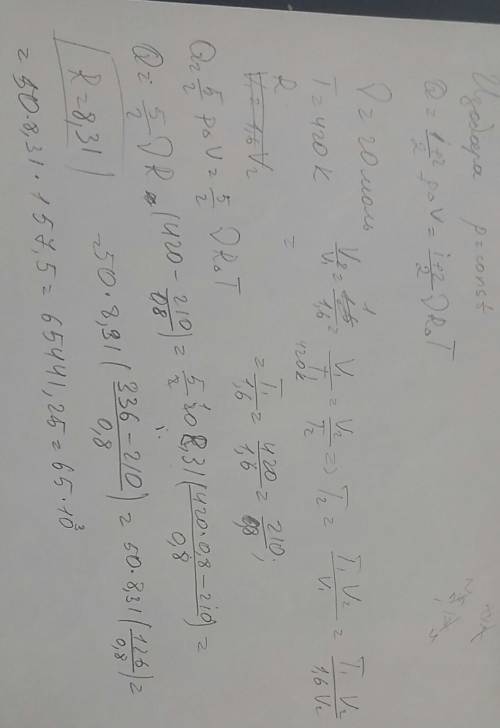 Изобара p=const
Q = (i+2)/2 pΔV = (i+2)/2 νRΔT
ν = 20 моль
T = 420 K
V₂/V₁ = 1/1,6 = V₁/T₁ = V₂/T₂ => T₂ = T₁V₂/V₁ = T₁V₂/1,6V₂
420K
R
V₁ = 1,6V₂
= = T₁/1,6 = 420/1,6 = 210/0,8;
Q = 5/2 pΔV = 5/2 νRΔT
Q = 5/2 νR (420 - 210/0,8) = 5/2 · 20 · 8,31 ((420·0,8 - 210)/0,8) =
R = 8,31
= 50·8,31 ((336 - 210)/0,8) = 50·8,31 (126/0,8) =
= 50·8,31·157,5 = 65441,25 = 65·10³